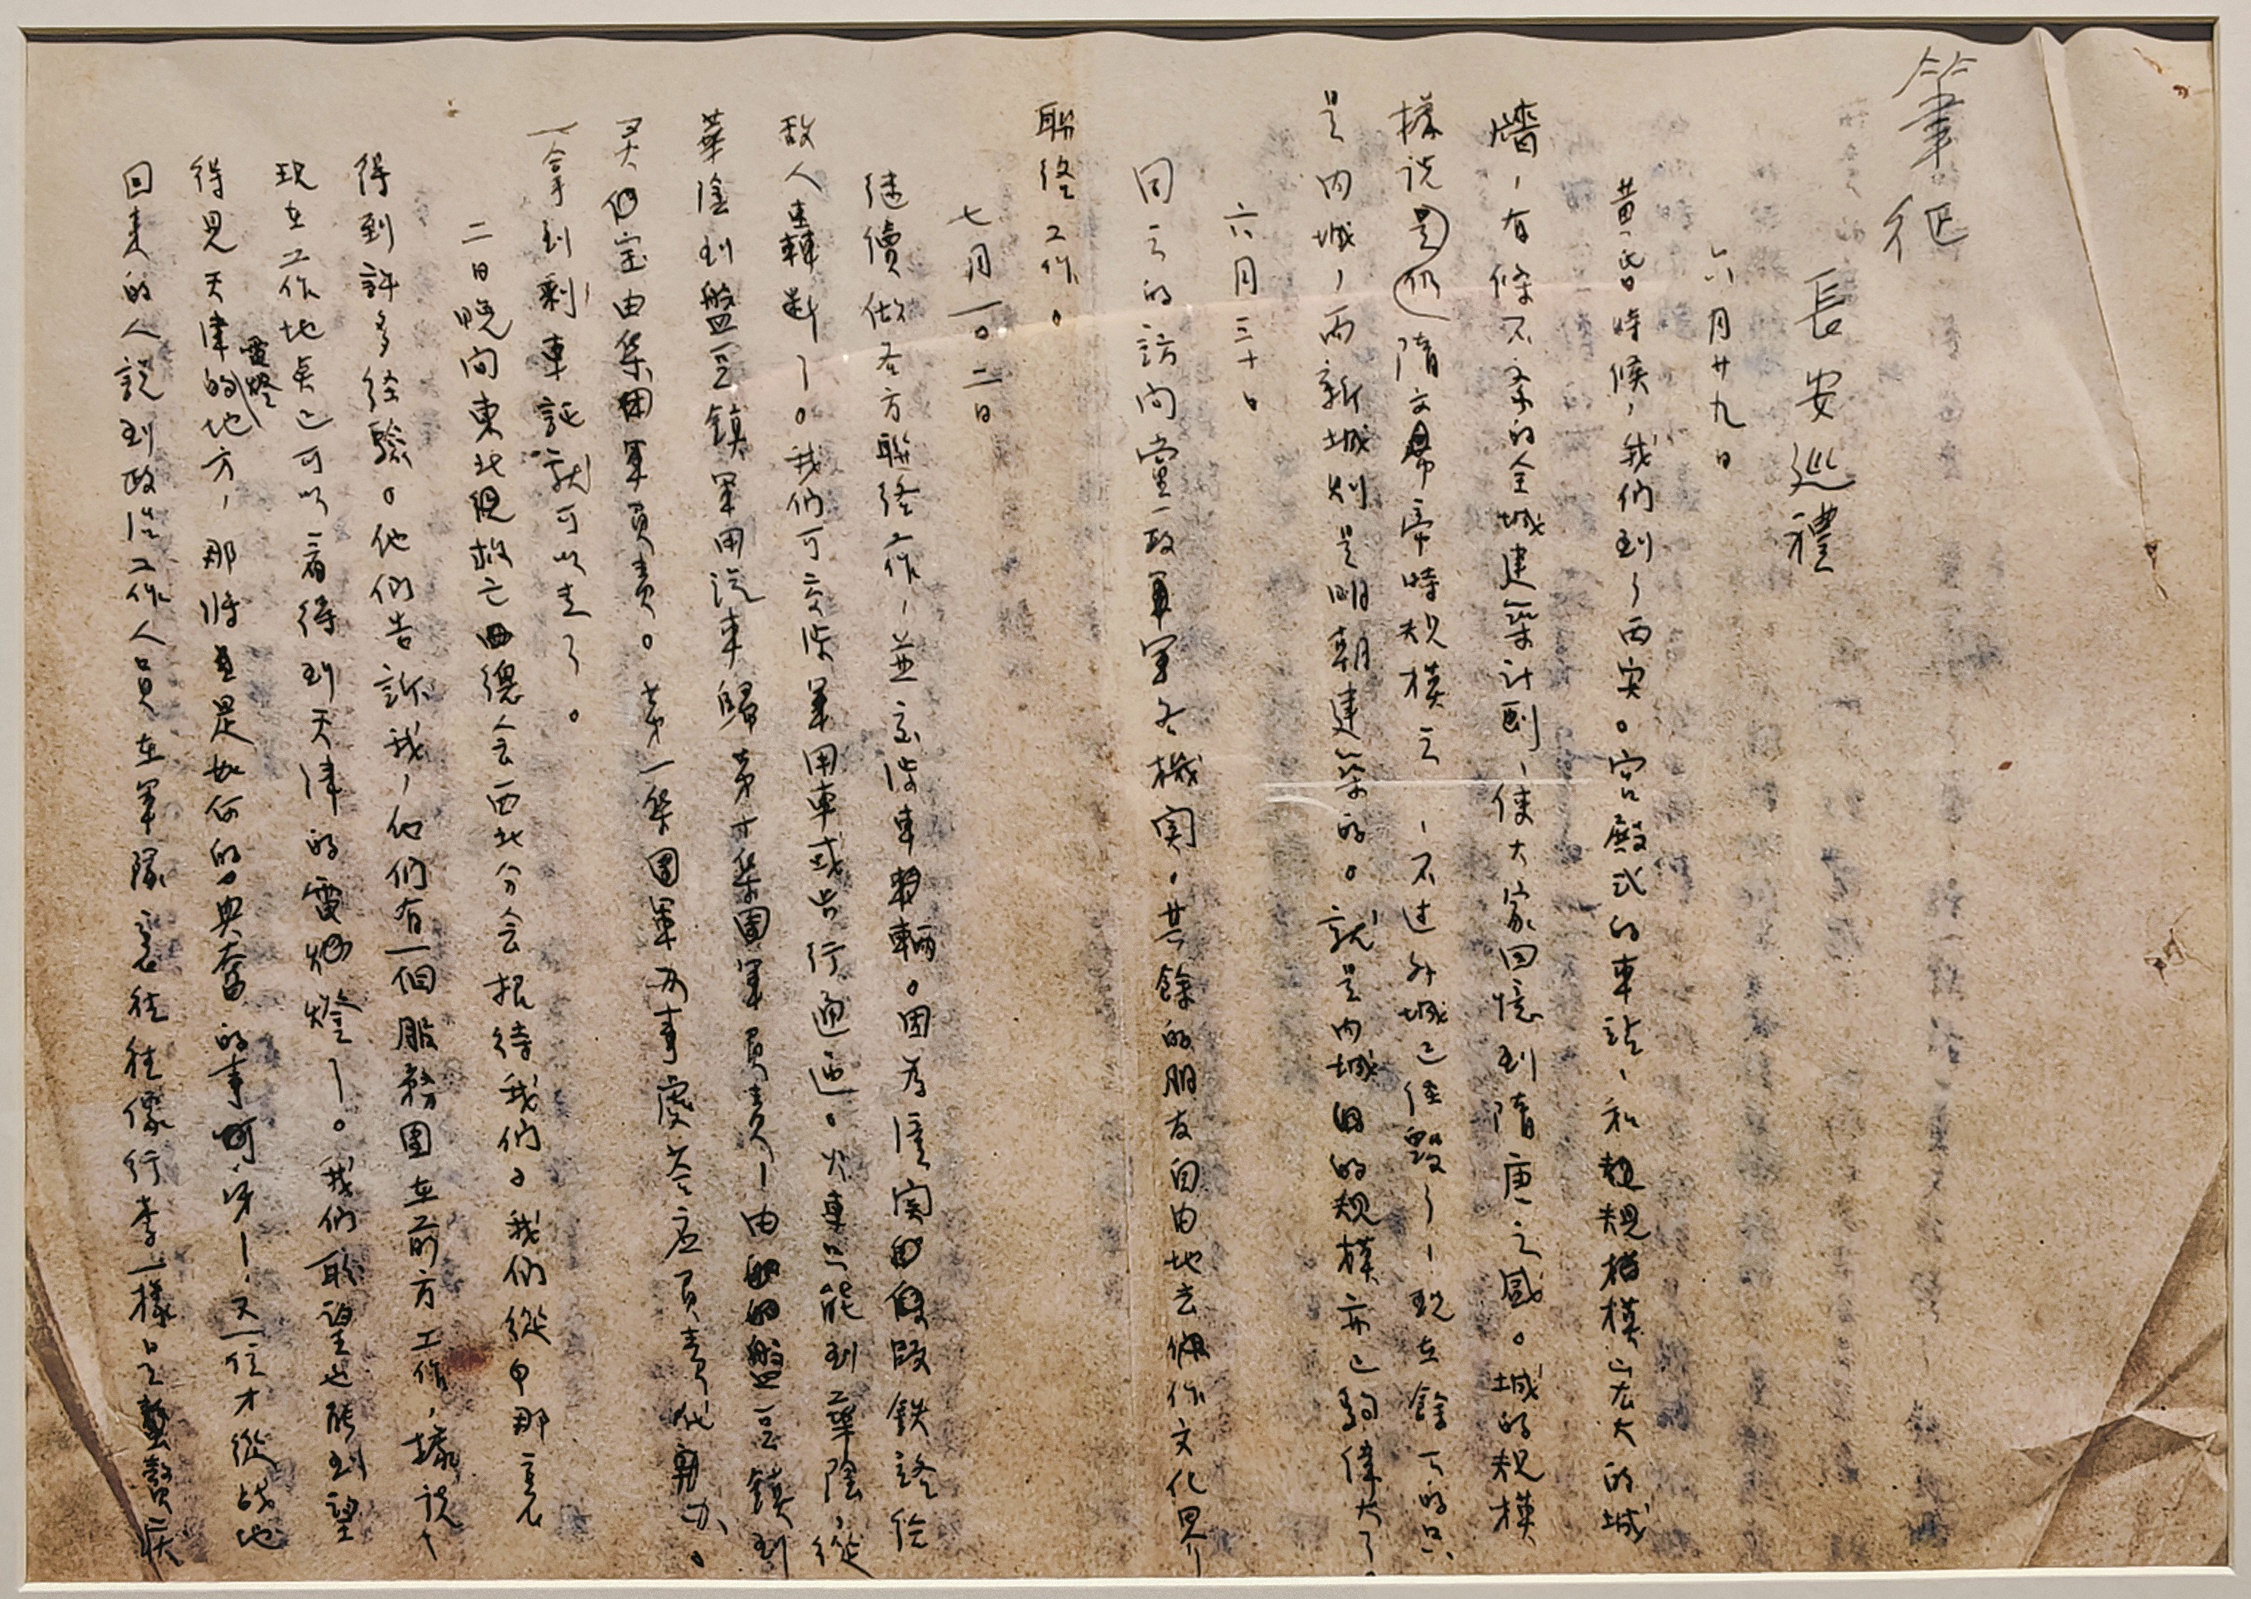 筆征
長安巡禮
六月廿九日
黃昏時候，我們到了西安。宮殿式的車站，和規模宏大的城
牆，有條不紊的全城建築計劃，使大家回憶到隋唐之感。城的規模
樣說是仍隋文帝時規模云，不过外城已經毀了，現在餘下的只
是內城，而新城則是明朝建築的。就是內城的規模亦已夠偉大了。
六月三十日
同之的訪问黨政軍各機関。其餘的朋友自由地去作文化界
聯絡工作。
七月一〇二日
继續做各方聯絡工作，並交涉車輛。因為潼関段鉄路給
敌人轟斷了。我们可交涉軍用車或步行通过。火車只能到華陰，從
華陰到盤豆鎮軍用汽車歸第十集團軍員責，由盤豆鎮到
灵宝由集團軍員責。第一集團軍办事處答应員責代办。
一拿到剩車証就可以走了。
二日晚间東北救亡總会西北分会招待我們，我們從中那裏
得到許多经驗。他們告訴我，他們有一個服務團在前方工作，據説，
現在工作地奌已可以看得到天津的電燈了。我們盼望也能到望
得見天津電燈的地方，那将是如何的興奮的事呀！又一位才從战地
回来的人説到政治工作人員在軍隊裏往往像行李一樣是